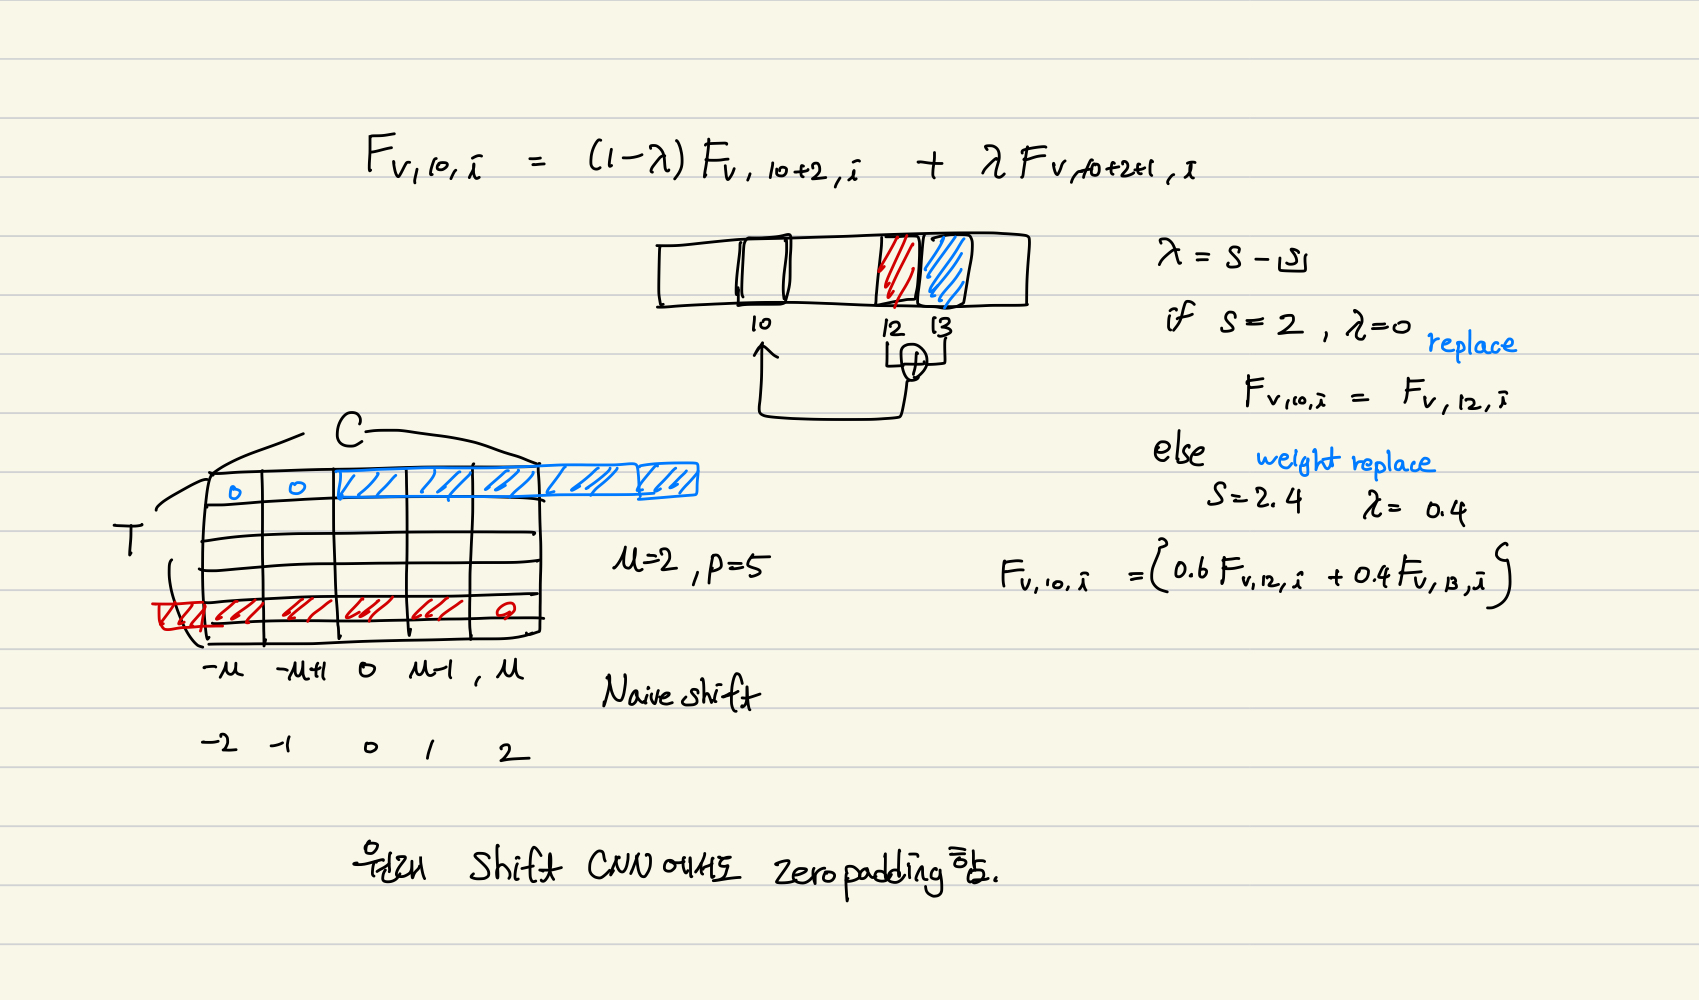 F_{v,10,i} = (1-λ) F_{v,10+2,i} + λ F_{v,10+2+1,i}
10 12 13
λ = s - ⌊s⌋
if s = 2, λ=0
replace
F_{v,10,i} = F_{v,12,i}
else weight replace
s=2.4 λ= 0.4
F_{v,10,i} = (0.6 F_{v,12,i} + 0.4 F_{v,13,i})
C
0 0
T
u=2, p=5
0
-u -u+1 0 u-1, u
Naive shift
-2 -1 0 1 2
원래 Shift CNN에서도 zero padding 함.